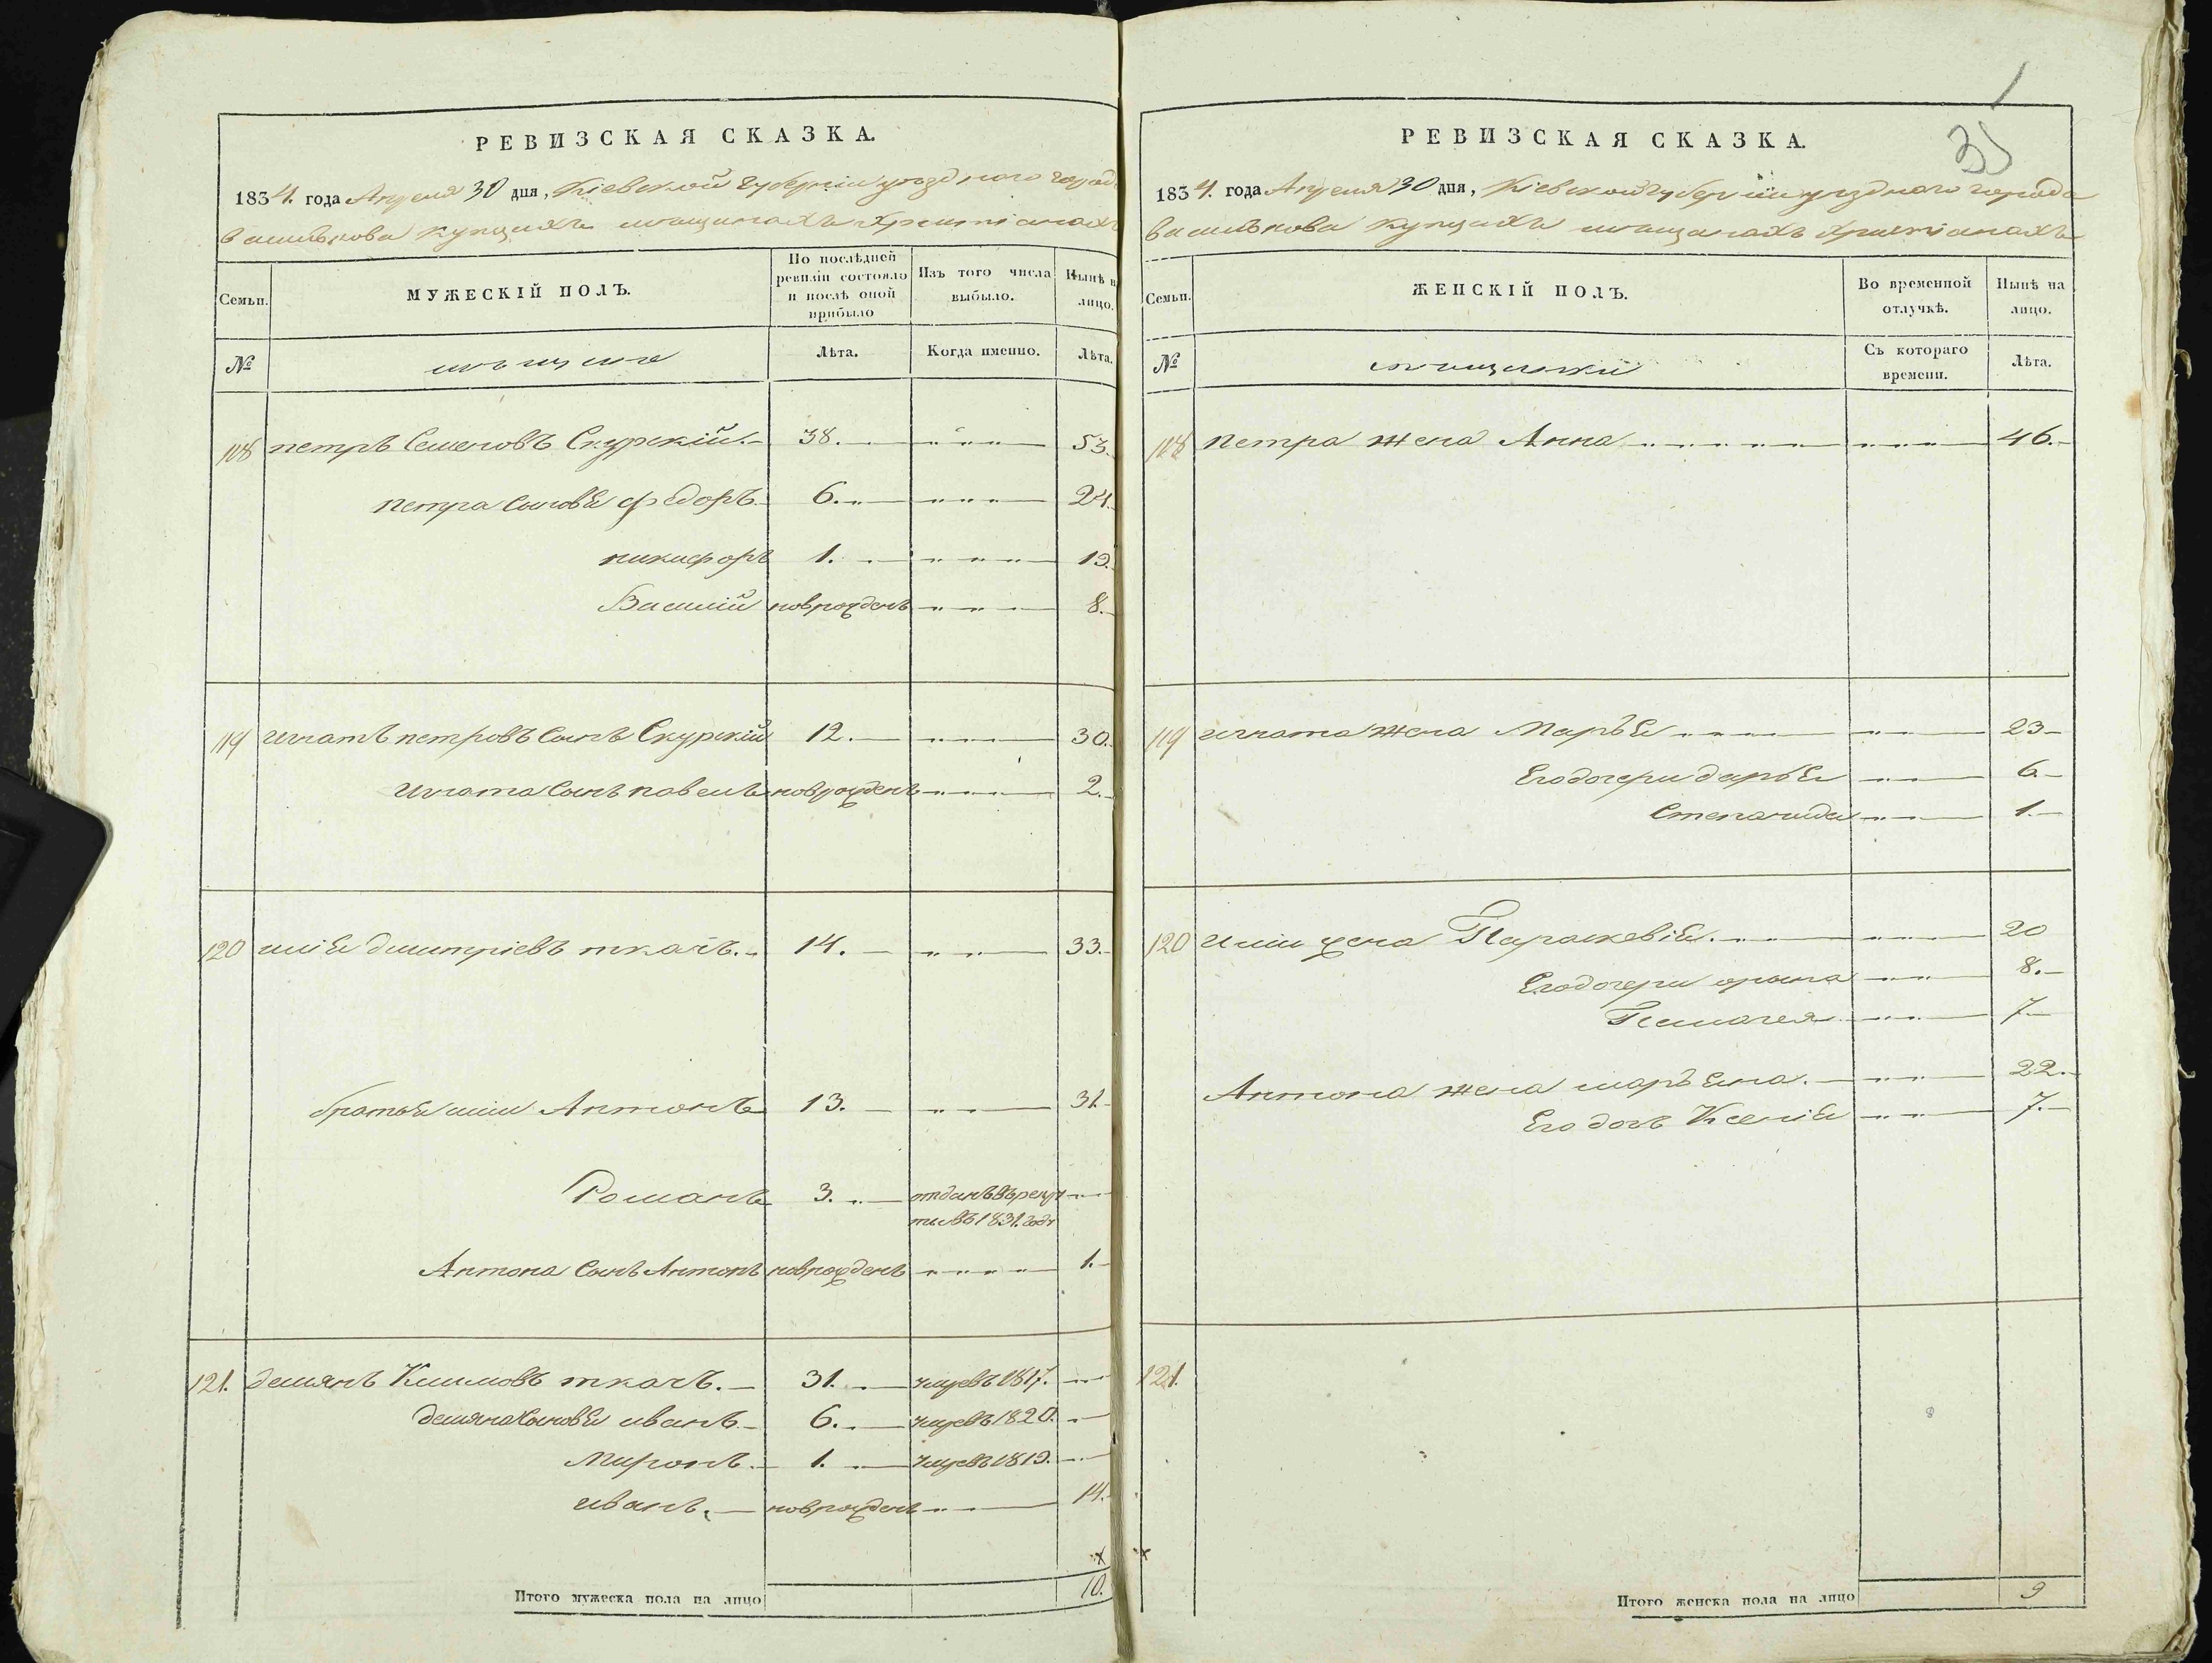 РЕВИЗСКАЯ СКАЗКА.
1834. года Апреля 30 дня, Кіевской губерніи уездного города
василькова купцахъ мещанахъ христіанахъ
Семьи.
МУЖЕСКІЙ ПОЛЪ.
По послѣдней ревизіи состояло и послѣ оной прибыло
Изъ того числа выбыло.
Нынѣ на лицо.
№
мещане
Лѣта.
Когда именно.
Лѣта.
118 петръ Семеновъ Скурскій 38. 53.
петра сыновья федоръ 6. 24.
никифоръ 1. 19.
Василій новрожденъ 8.
119 игнатъ петровъ сынъ Скурскій 12. 30.
игната сынъ павелъ новрожденъ 2.
120 илія дмитріевъ ткачъ. 14. 33.
братья иліи Антонъ 13. 31.
Романъ 3. отданъ въ рекру
ты въ 1831. годе
Антона сынъ Антонъ новрожденъ 1.
121. демянъ Климовъ ткачъ. 31. умре въ 1817.
демяна сыновья иванъ 6. умре въ 1820.
Миронъ 1. умре въ 1819.
иванъ. новрожденъ 14.
Итого мужеска пола на лицо 10.
35
РЕВИЗСКАЯ СКАЗКА.
1834. года Апреля 30 дня, Кіевской губерніи уездного города
василькова купцахъ мещанахъ христіанахъ
Семьи.
ЖЕНСКІЙ ПОЛЪ.
Во временной отлучкѣ.
Нынѣ на лицо.
№
мещанки
Съ котораго времени.
Лѣта.
118 петра жена Анна 46.
119 игната жена Марья 23
Его дочери дарья 6.
Степанида 1.
120 иліи жена Параскевія 20
Его дочери орына 8.
Пелагея 7
Антона жена марьяна. 22.
Его дочь Ксенія 7.
121.
Итого женска пола на лицо 9